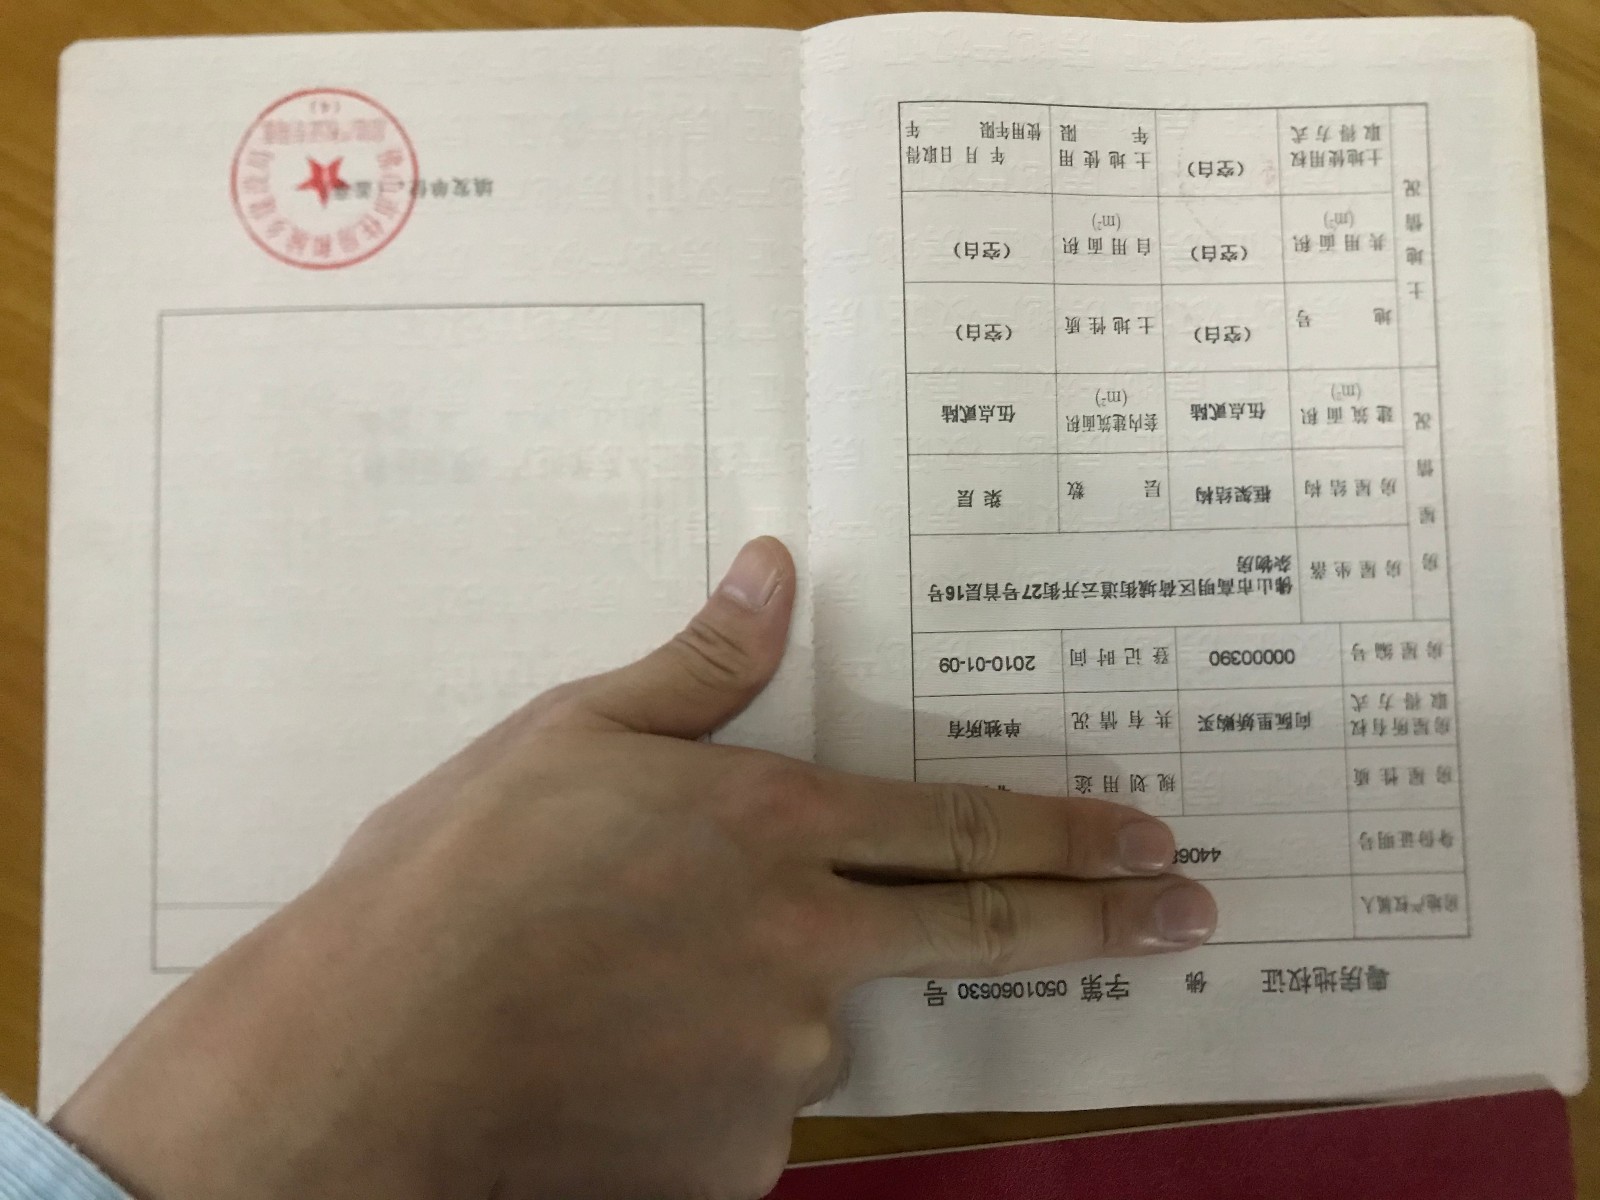 粤房地权证 佛 字第 0501060630 号
房地产权属人
身份证明号 4406
房屋性质 规划用途
房屋所有权 向阮里娇购买 共有情况 单独所有
取得方式
房屋编号 00000390 登记时间 2010-01-09
房屋坐落 佛山市高明区荷城街道云开街27号首层16号
杂物房
房屋情况
房屋结构 框架结构 层数 架层
建筑面积 伍点贰陆 套内建筑面积 伍点贰陆
(m²) (m²)
土地情况
地号 (空白) 土地性质 (空白)
共用面积 (空白) 自用面积 (空白)
(m²) (m²)
土地使用权 (空白) 土地使用 年 月 日取得
取得方式 年限 使用年限 年
填发单位
佛山市住房和城乡建设局
(4)